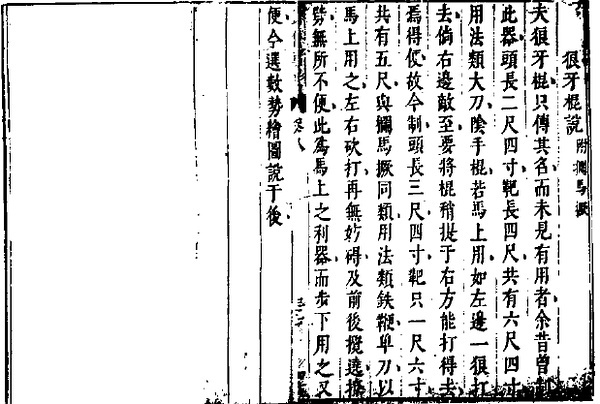 狼牙棍說 附攔馬撅
夫狼牙棍只傳其名而未見有用者余昔曾制
此器頭長二尺四寸靶長四尺共有六尺四寸
用法類大刀陰手棍若馬上用如左邊一狼打
去倘右邊敵至要將棍稍提于右方能打得去
焉得便故今制頭長三尺四寸靶只一尺六寸
共有五尺與攔馬撅同類用法類鉄鞭单刀以
馬上用之左右砍打再無妨碍及前後攪遶
勢無所不便此爲馬上之利器而步下用之又
便今選數勢繪圖說于後
卷八